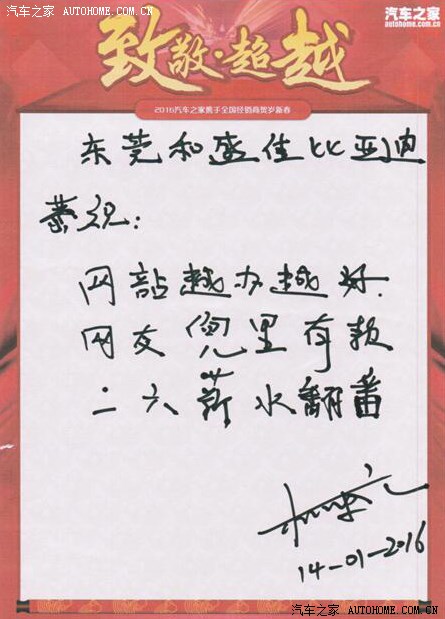 汽车之家 AUTOHOME.COM.CN
汽车之家
autohome.com.cn
致敬·超越
2016汽车之家携手全国经销商贺岁新春
东莞和盛佳比亚迪
恭祝:
网站越办越好.
网友兜里有款
二六薪水翻番
14-01-2016
汽车之家 AUTOHOME.COM.CN